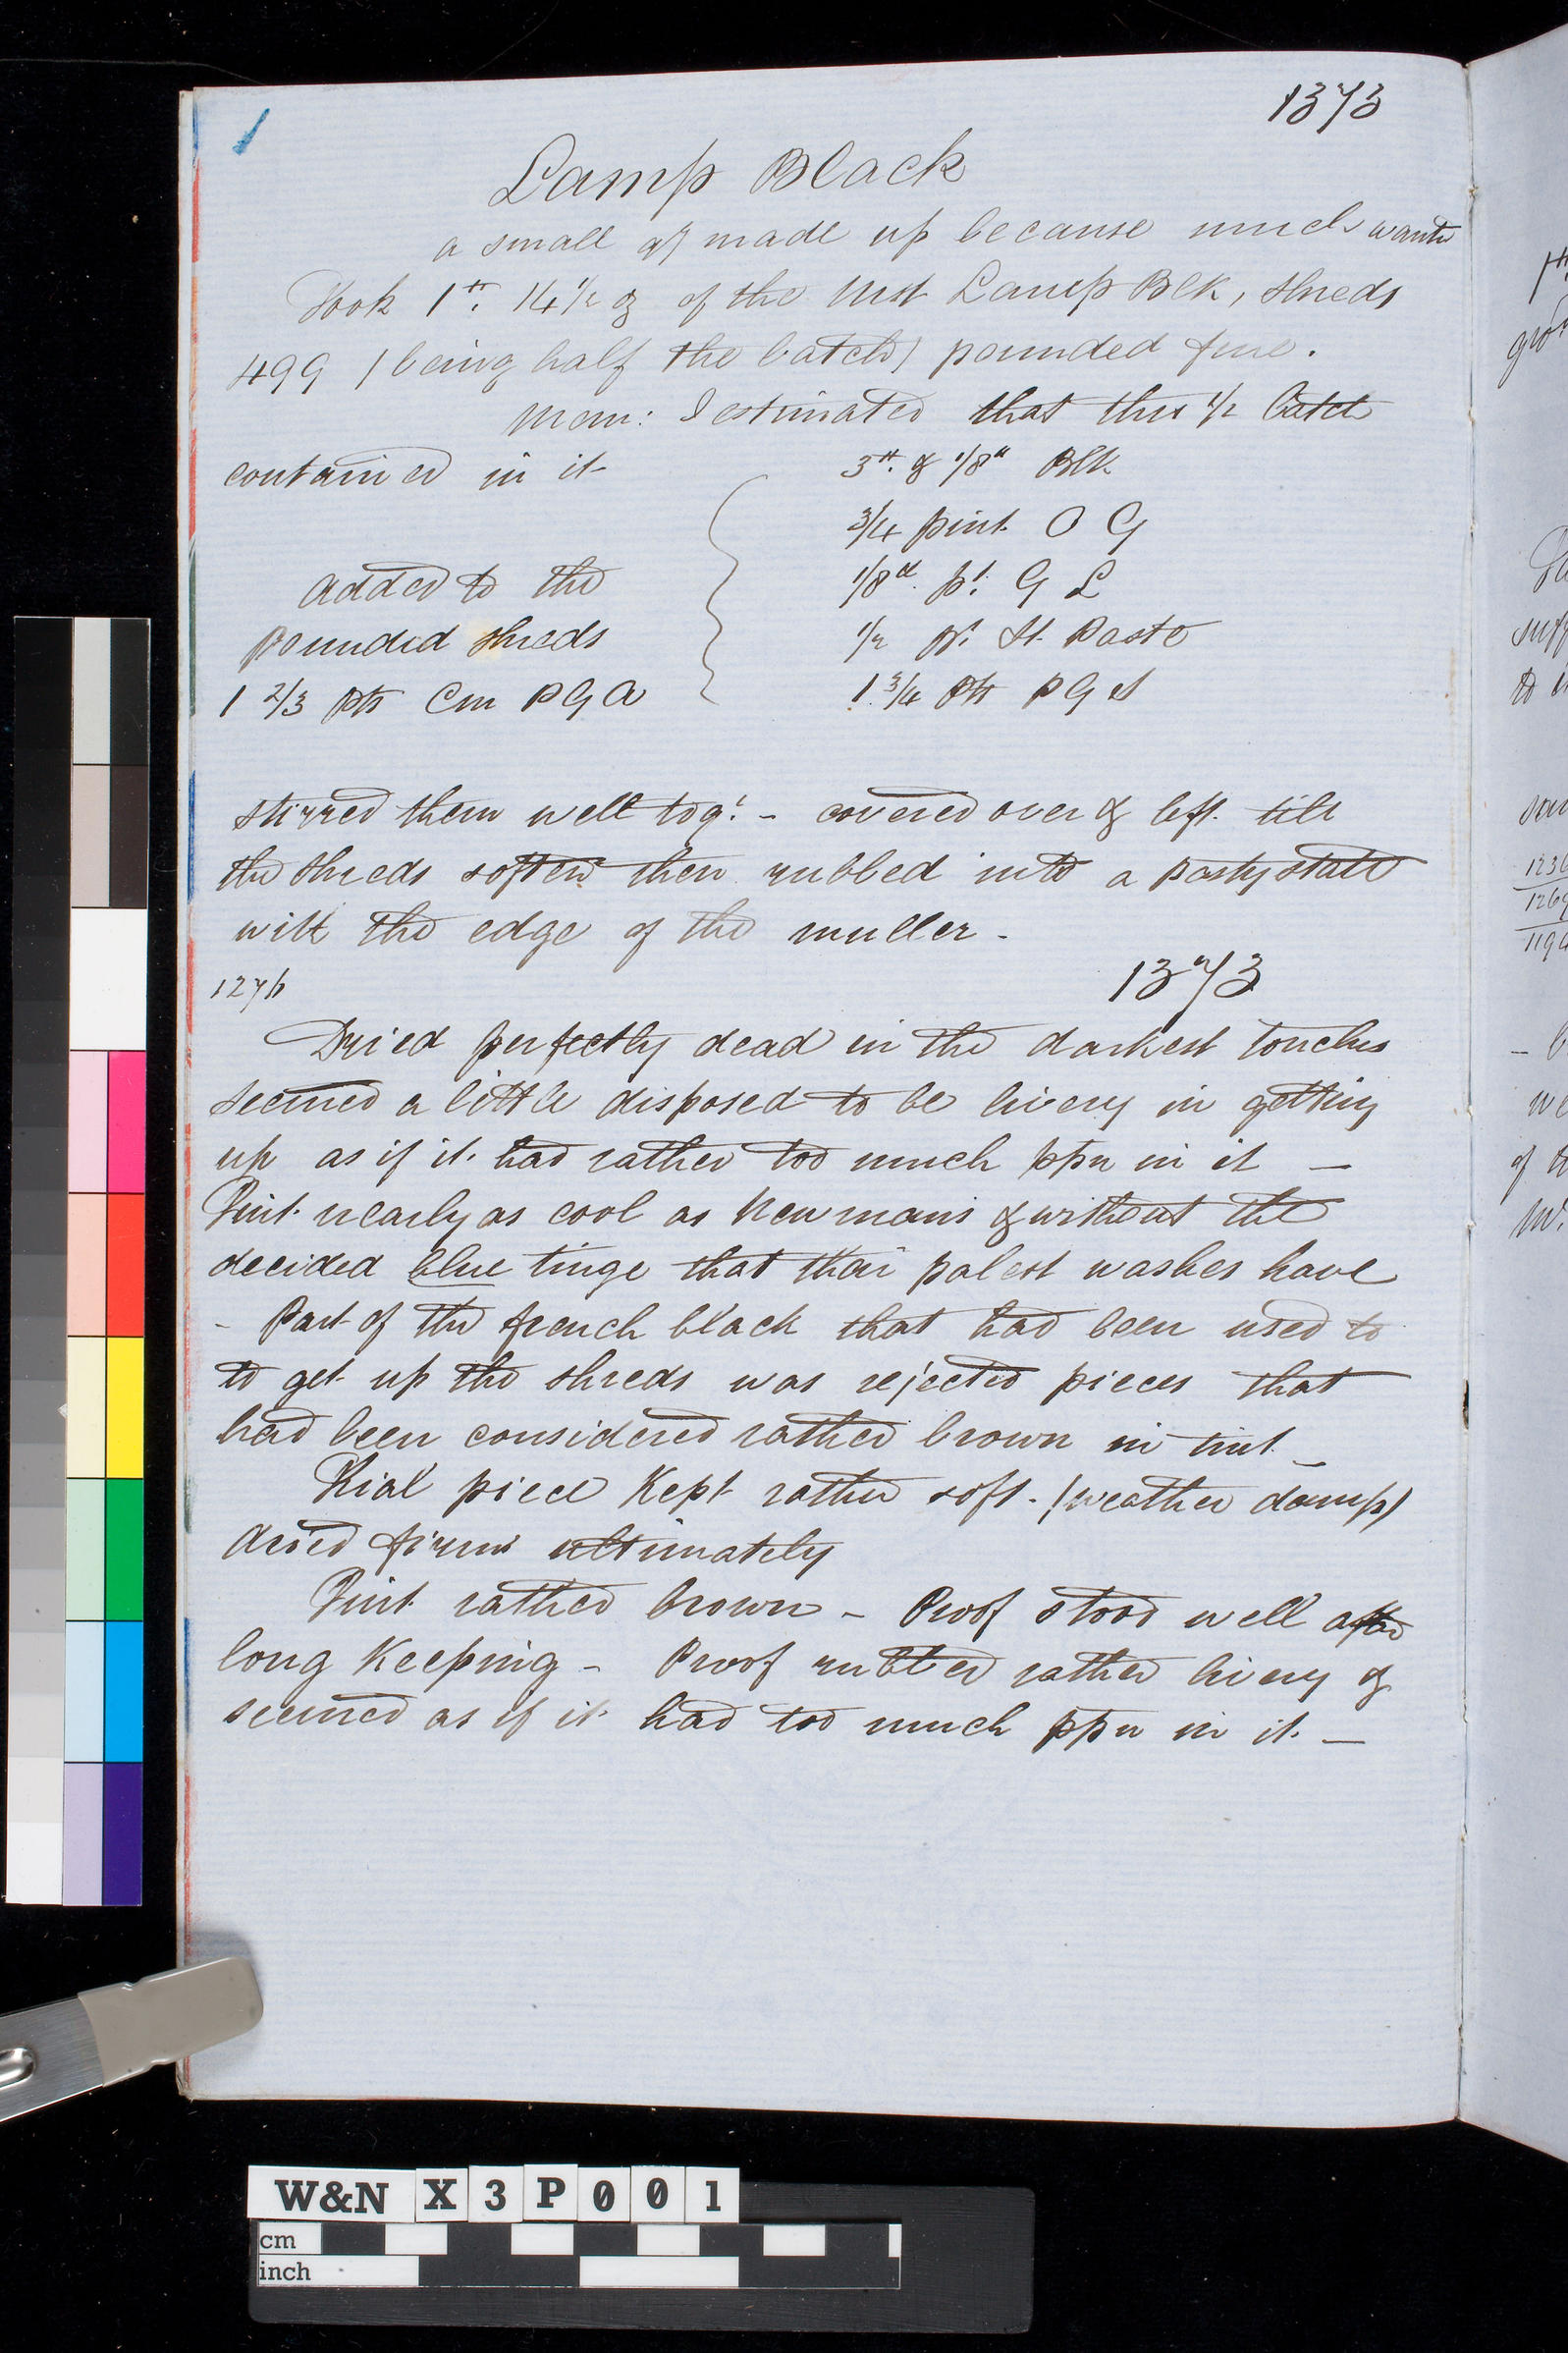 1373
1
Lamp Black
a small qy made up because much wanted
Took 1 lb. 14 1/2 oz of the Moist Lamp Blk, shreds
499 (being half the batch) pounded fine.
Mem: I estimated that this 1/2 batch
contained in it 3 lb. & 1/8th Blk
3/4 pint O G
added to the 1/8th pt. G L
pounded shreds 1/2 pt. St. Paste
1 2/3 Pts Cm P G A 1 3/4 Pts P G S
stirred them well togr. - covered over & left till
the shreds softend then rubbed into a pasty state
with the edge of the muller -
1276 1373
Dried perfectly dead in the darkest touches
seemed a little disposed to be livery in getting
up as if it had rather too much ppn in it —
Tint nearly as cool as Newmans & without the
decided blue tinge that their palest washes have
- Part of the french black that had been used to
to get up the shreds was rejected pieces that
had been considered rather brown in tint -
Trial piece kept rather soft - (weather damp)
dried firm ultimately
Tint rather brown - Proof stood well after
long keeping - Proof rubbed rather livery &
seemed as if it had too much ppn in it. —
W&N X 3 P 0 0 1
cm
inch